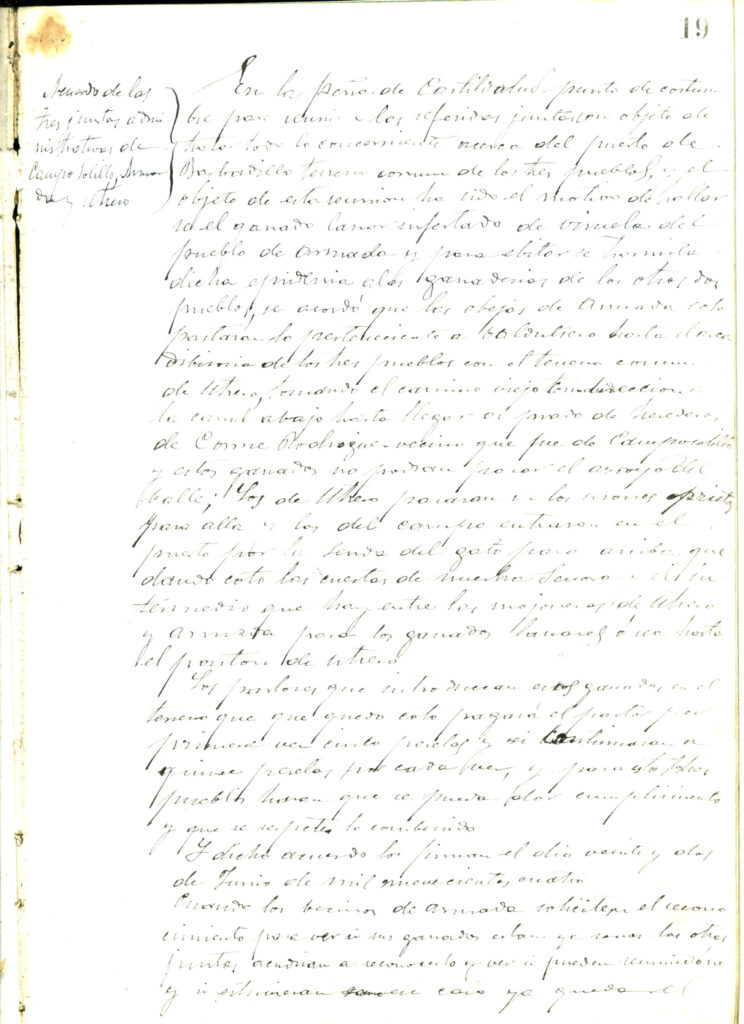 19
Acuerdo de las
tres juntas admi
nistrativas de
Camposolillo, Arma
da y Utrero
En la Peña de Castildalud punto de costum
bre para reunir a los referidas juntas con objeto de
tratar todo lo concerniente acerca del puerto de
Barbadillo terreno comun de los tres pueblos, y el
objeto de esta reunion ha sido el motivo de hallar
se el ganado lanar infertado de viruela del
pueblo de Armada y para ebitar se
dicha epidemia a las ganaderias de los otros dos
pueblos, se acordó que las obejas de Armada solo
pastaran lo perteneciente a hasta
de los tres pueblos con el terreno comun
de Utrero, tomando el camino viejo con direccion a
la canal abajo hasta llegar al prado de herederos
de Cosme Rodriguez vecino que fue de Camposolillo
y estos ganados no podran pasar el arroyo del
Balle; Los de Utrero pasaran en los
para alla y los del campo entraran en el
puerto por la Senda del gato para arriba que
dando coto las cuestas de nuestra Señora y el in
termedio que hay entre las mojoneras de Utrero
y Armada para los ganados lanares ó sea hasta
el ponton de Utrero
Los pastores que introduzcan esos ganados en el
terreno que que quedo coto pagará el pastor por
primera vez cinco pesetas y si continuaran a
quince pesetas por cada vez, y para esto los
pueblos haran que se pueda dar cumplimiento
y que se respete lo combenido
Y dicho acuerdo los firman el dia veinte y dos
de Junio de mil novecientos cuatro
Cuando los becinos de Armada soliciten el recono
cimiento para ver si sus ganados estan ya sanos las otras
juntas acudiran a reconocerlo y ver si pueden
y si estuvieran ese caso ya queda el